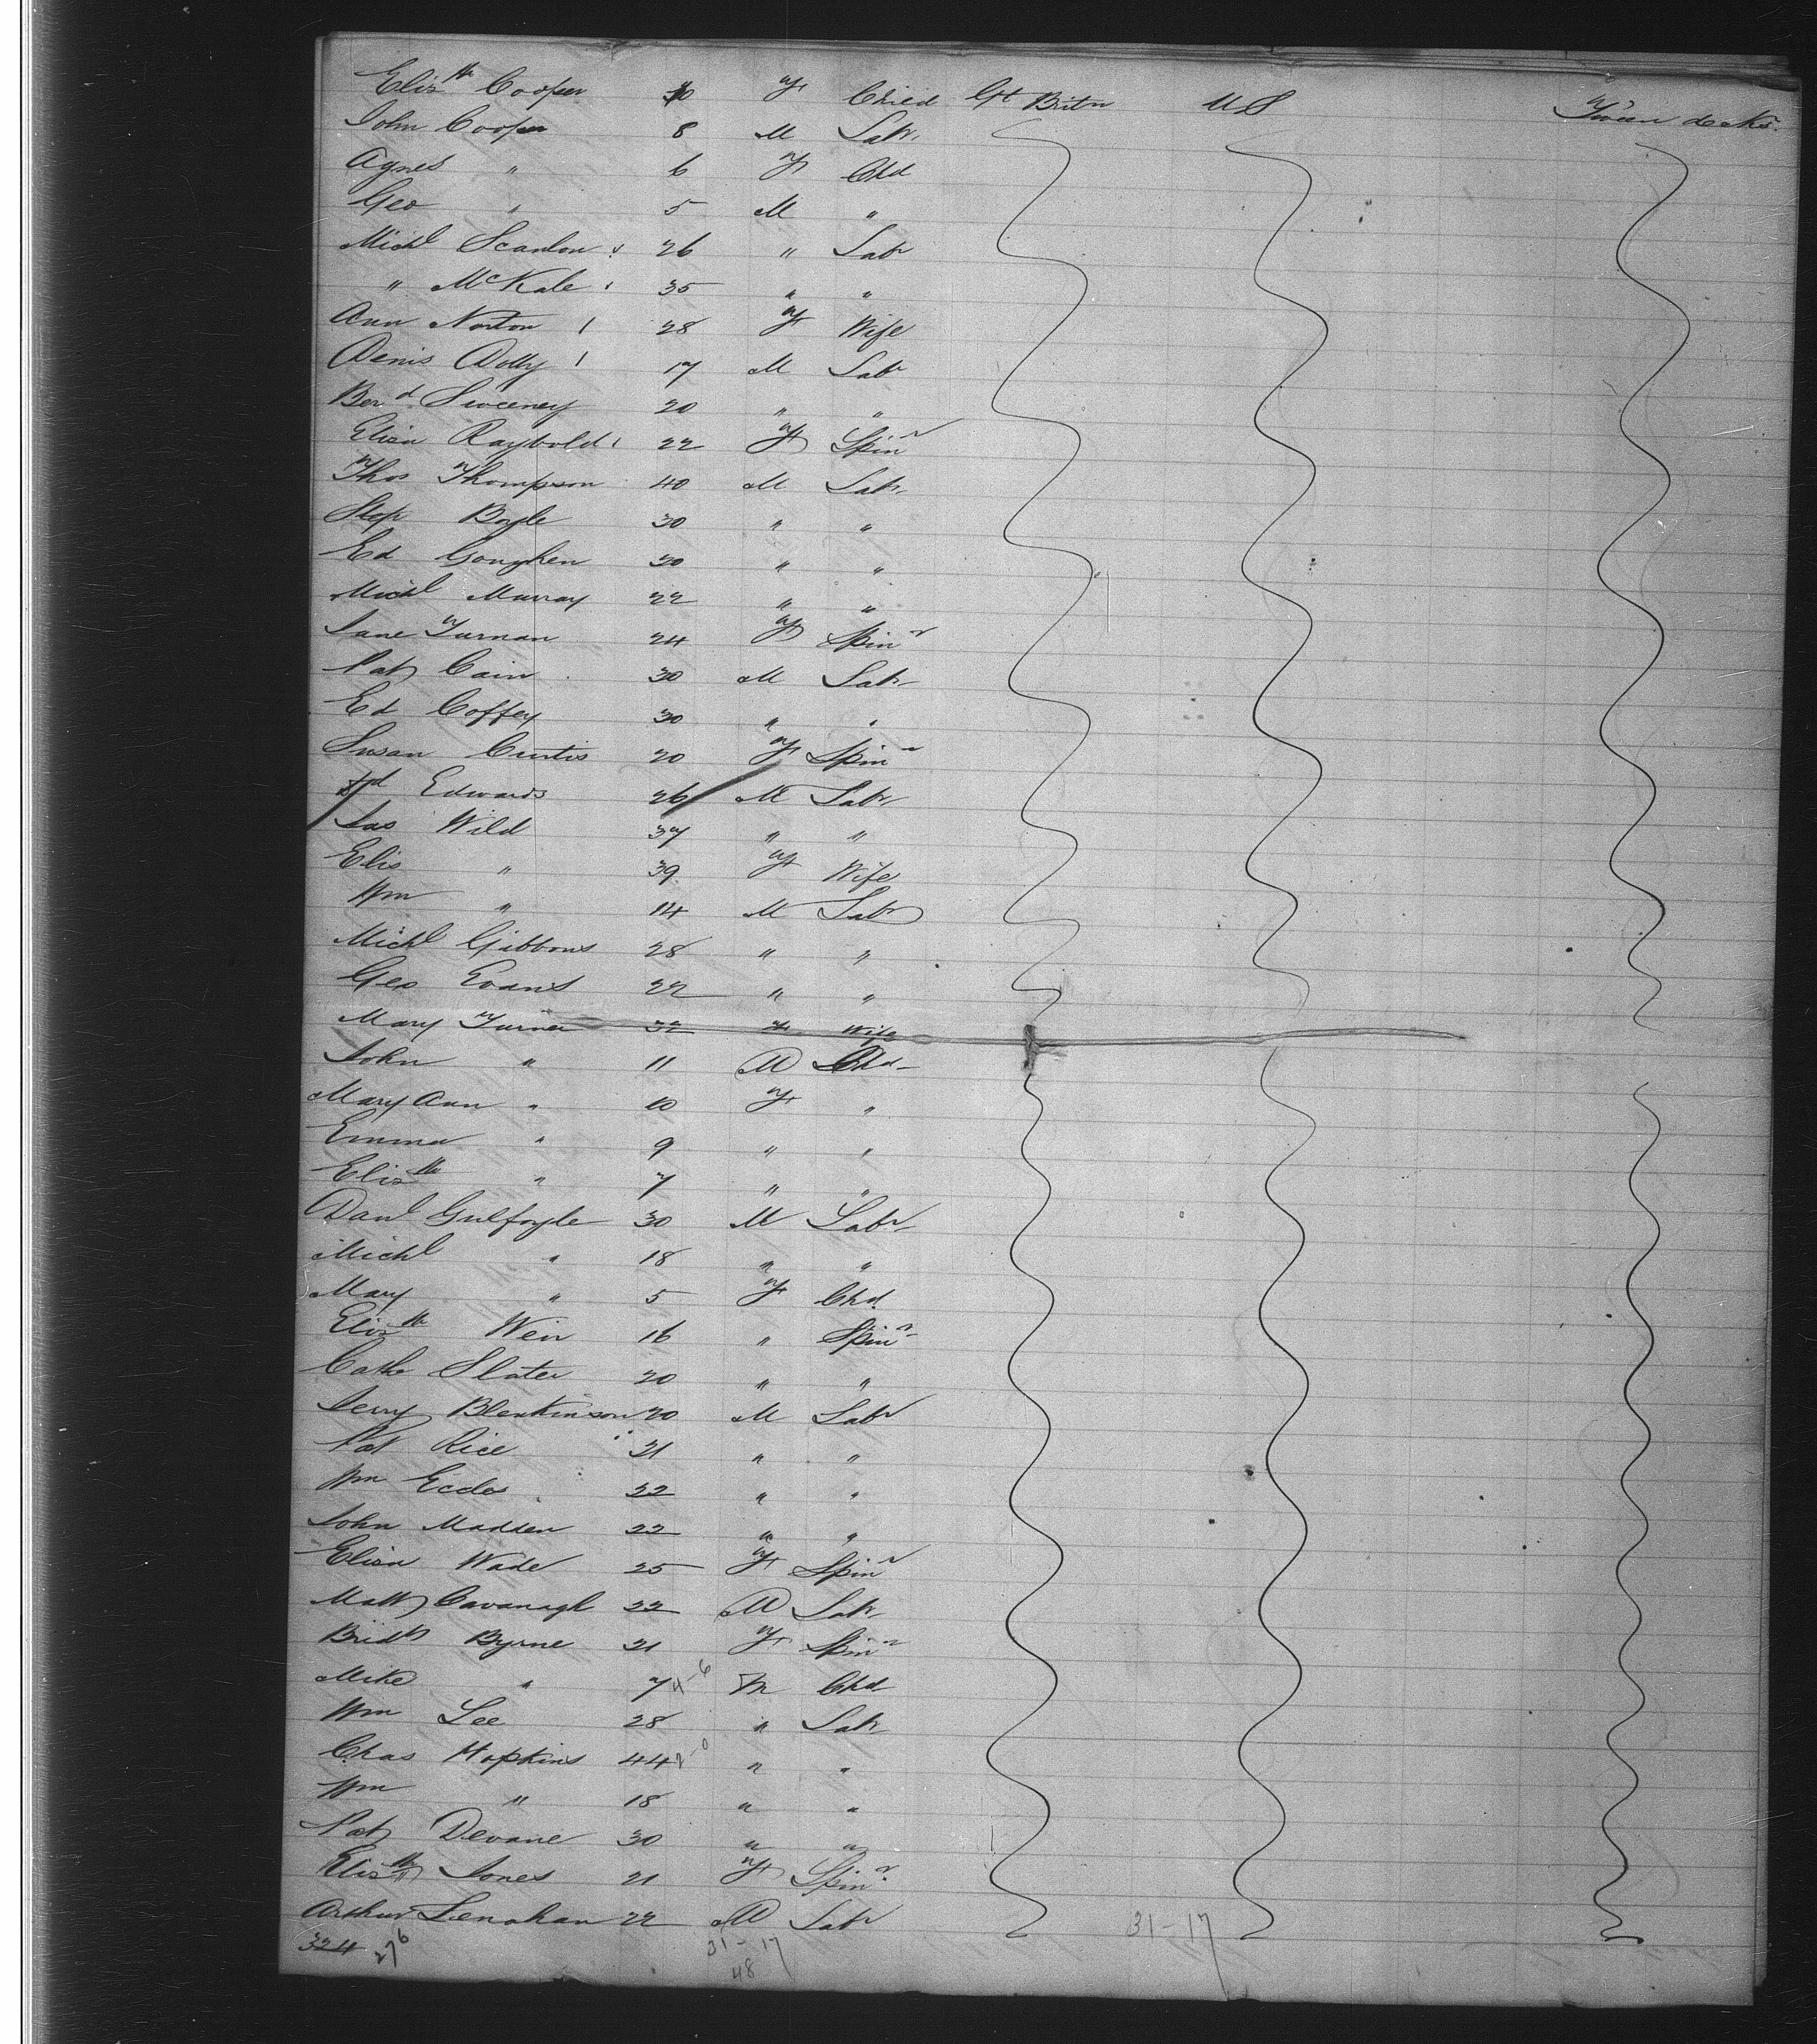 Elizth Cooper 10 F Child Gt Britn U S 'Tween decks.
John Cooper 8 M Labr
Agnes " 6 F Chd
Geo " 5 M "
Michl Scanlon 26 " Labr
" McKale 35 " "
Ann Norton 28 F Wife
Denis Dolly 17 M Labr
Berd Sweeney 20 " "
Eliza Raybold 22 F Spinr
Thos Thompson 40 M Labr
Step Boyle 30 " "
Ed Goughen 30 " "
Michl Murray 22 " "
Jane Turnan 24 F Spinr
Pat Cain 30 M Labr
Ed Coffey 30 " "
Susan Curtis 20 F Spinr
Edwards 26 M Labr
Jas Wild 37 " "
Elis " 39 F Wife
Wm " 14 M Labr
Michl Gibbons 28 " "
Geo Evans 22 " "
Mary Turner 32 F Wife
John " 11 M Chd
Mary Ann " 10 F "
Emma " 9 " "
Elizth " 7 " "
Danl Gulfoyle 30 M Labr
Michl " 18 " "
Mary " 5 F Chd.
Elizth Weir 16 " Spinr
Cath Slater 20 " "
Jerry Blenkinson 20 M Labr
Pat Rice 21 " "
Wm Eccles 22 " "
John Madden 22 " "
Eliza Wade 25 F Spinr
Matt Cavanagh 22 M Labr
Bridt Byrne 21 F Spinr
Mike " 7 4-6 M Chd
Wm Lee 28 " Labr
Chas Hopkins 44 2-0 " "
Wm " 18 " "
Pat Devane 30 " "
Elizth Jones 21 F Spinr
Arthur Lenahan 22 M Labr
324 276 31-17 31-17
48